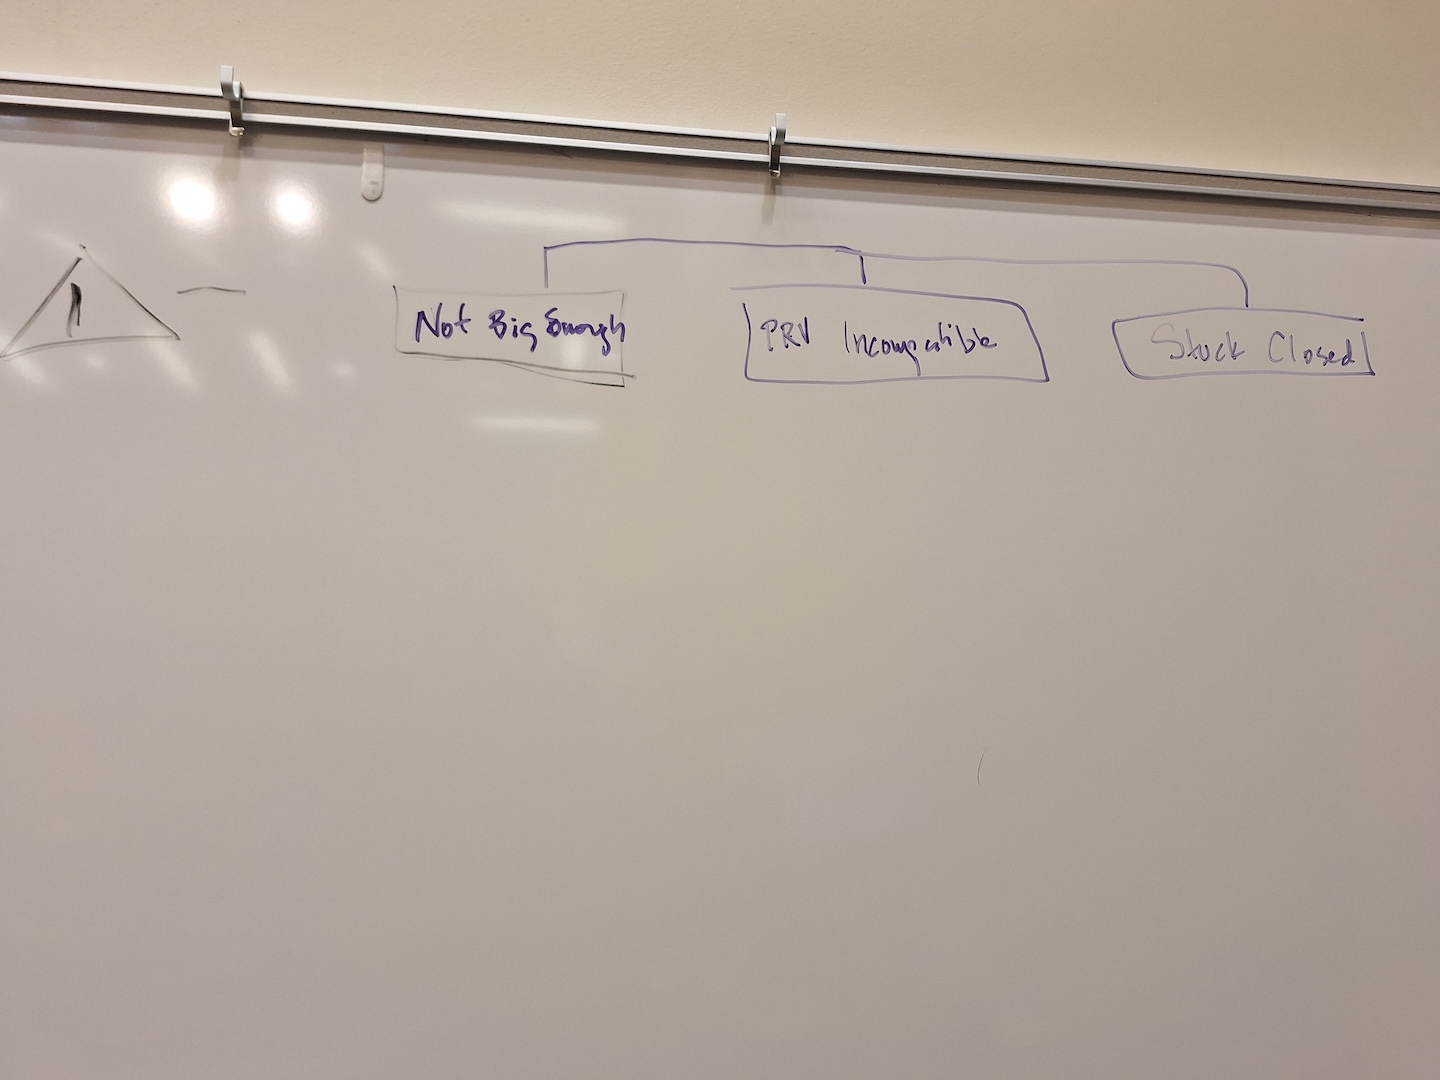 1
Not Big Enough
PRV Incompatible
Stuck Closed